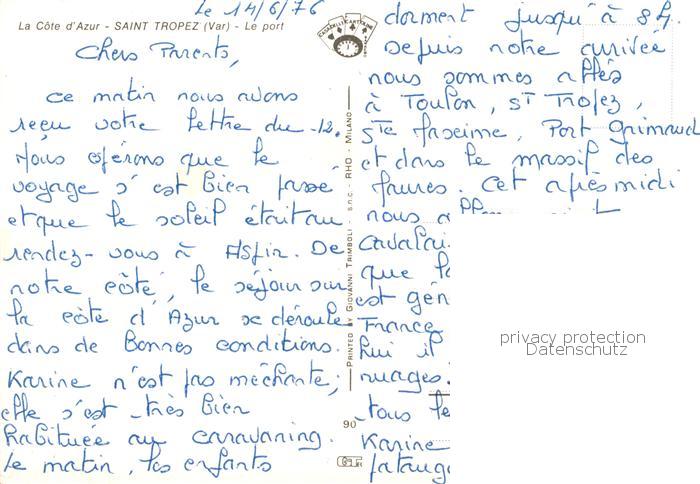 le 14/6/76
La Côte d'Azur - SAINT TROPEZ (Var) - Le port
Chers Parents,
Ce matin nous avons
reçu votre lettre du 12.
Nous espérons que le
voyage s'est bien passé
et que le soleil était au
rendez-vous à Aspin. De
notre côté, le séjour sur
la côte d'Azur se déroule
dans de Bonnes conditions.
Karine n'est pas méchante,
elle s'est très bien
habituée au caravaning.
Le matin, les enfants
90
PRINTED BY GIOVANNI TRIMBOLI s.n.c. - RHO - MILANO
dorment jusqu'à 8h.
Depuis notre arrivée
nous sommes allés
à Toulon, St Tropez,
Ste Maxime, Port Grimaud
et dans le massif des
Maures. Cet après midi
nous a
Cavalai
que la
est gén
France
hui il
nuages.
tous le
Karine
pataug
privacy protection
Datenschutz